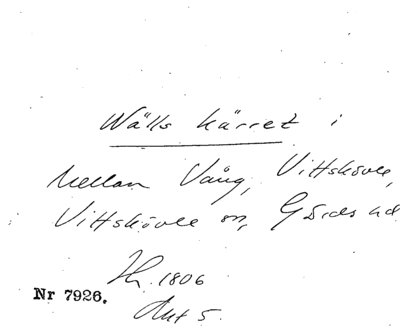 Wälls kärret i
Mellan Vång, Vittskövle,
Vittskövle sn, Gärds hd
Hk. 1806
Nr 7926.
Akt 5.